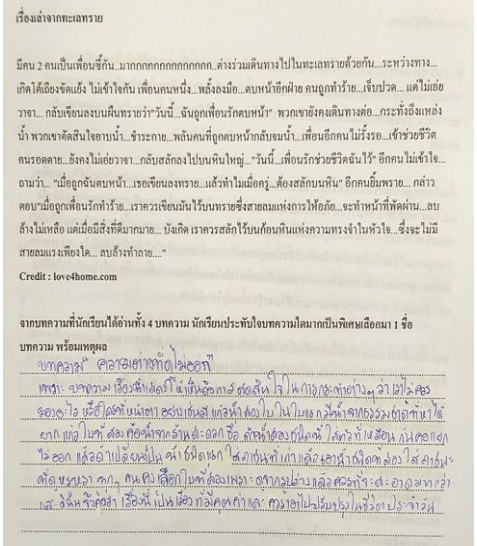 เรื่องเล่าจากทะเลทราย
มีคน 2 คนเป็นเพื่อนซี้กัน..มากกกกกกกกกกกกกก..ต่างร่วมเดินทางไปในทะเลทรายด้วยกัน...ระหว่างทาง...
เกิดโต้เถียงขัดแย้ง ไม่เข้าใจกัน เพื่อนคนหนึ่ง...พลั้งลงมือ...ตบหน้าอีกฝ่าย คนถูกทำร้าย...เจ็บปวด... แต่ไม่เอ่ย
วาจา... กลับเขียนลงบนผืนทรายว่า"วันนี้...ฉันถูกเพื่อนรักตบหน้า" พวกเขายังคงเดินทางต่อ...กระทั่งถึงแหล่ง
น้ำ พวกเขาตัดสินใจอาบน้ำ...ชำระกาย...พลันคนที่ถูกตบหน้ากลับจมน้ำ...เพื่อนอีกคนไม่รั้งรอ...เข้าช่วยชีวิต
คนรอดตาย...ยังคงไม่เอ่ยวาจา...กลับสลักลงไปบนหินใหญ่..."วันนี้...เพื่อนรักช่วยชีวิตฉันไว้" อีกคนไม่เข้าใจ...
ถามว่า... "เมื่อถูกฉันตบหน้า...เธอเขียนลงทราย...แล้วทำไมเมื่อครู่...ต้องสลักบนหิน" อีกคนยิ้มพราย... กล่าว
ตอบ"เมื่อถูกเพื่อนรักทำร้าย...เราควรเขียนมันไว้บนทรายซึ่งสายลมแห่งการให้อภัย...จะทำหน้าที่พัดผ่าน...ลบ
ล้างไม่เหลือ แต่เมื่อมีสิ่งที่ดีมากมาย... บังเกิด เราควรสลักไว้บนก้อนหินแห่งความทรงจำในหัวใจ...ซึ่งจะไม่มี
สายลมแรงเพียงใด... ลบล้างทำลาย...."
Credit : love4home.com
จากบทความที่นักเรียนได้อ่านทั้ง 4 บทความ นักเรียนประทับใจบทความใดมากเป็นพิเศษเลือกมา 1 ชื่อ
บทความ พร้อมเหตุผล
บทความ" ความต่างที่คิดไม่ออก"
เพราะ บทความ เรื่องนี้ ให้เห็นถึงการ ตัดสินใจ ในการกระทำต่างๆ ว่าเราไม่ควร
มองอะไร หรือใครที่หน้าตา แก้วน้ำสองใบ ใบแรกมีน้ำจากธรรมชาติที่หาได้
ยาก แก้วใบที่สองคือน้ำจากร้านสะดวกซื้อ
ไม่ออก
คนคงเลือกใบที่สองเพราะ ดูจากรูปร่าง
เรื่องนี้เป็นเรื่องที่มีคุณค่าและ ควรเอาไปปรับปรุงในชีวิตประจำวัน